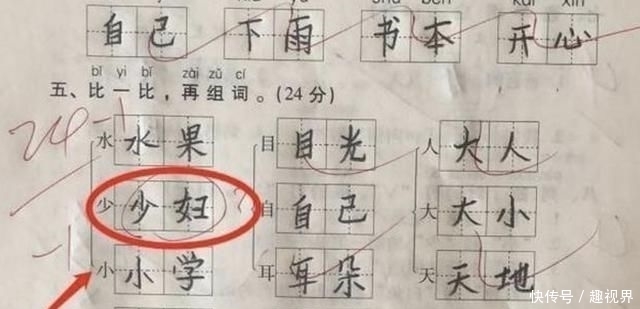 自己 下雨 书本 开心
bǐ yi bǐ zài zǔ cí
五、比一比,再组词。(24分)
24 -1
水 水果 目 目光 人 大人
少 少妇 ? 自 自己 大 大小
-1
小 小学 耳 耳朵 天 天地
快传号/趣视界